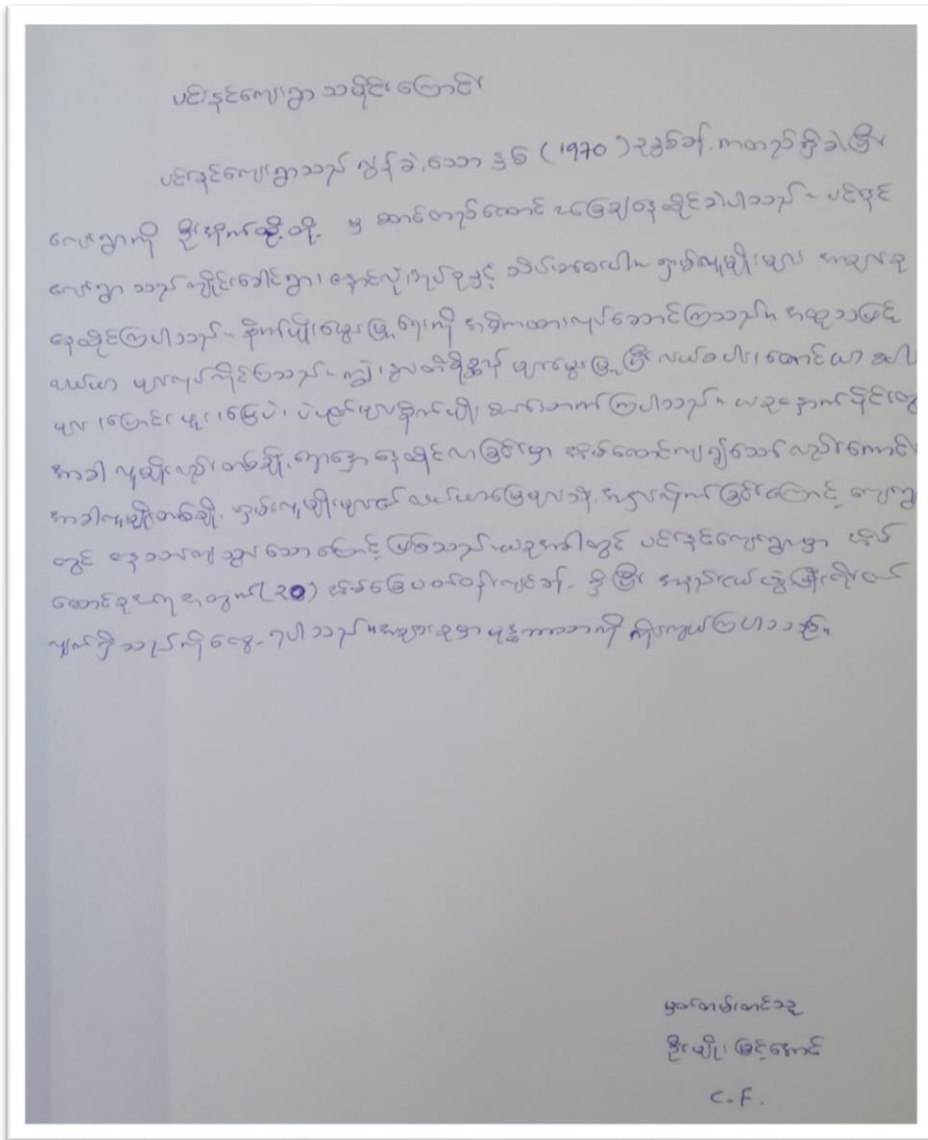 ပင်းနင်ကျေးရွာ သမိုင်းကြောင်း
ပင်းနင်ကျေးရွာသည် လွန်ခဲ့သော နှစ် (1970) ခုနှစ်ခန့်ကတည်ရှိခဲ့ပြီး
ကျေးရွာကို ဦး တို့ မှ ဆောင်တည်ထောင် အခြေချနေထိုင်ခဲ့ပါသည်။ ပင်းနင်
ကျေးရွာ သည် ကျိုင်းခေါင်ရွာ၊ နောင်လုံးအုပ်စုနှင့် သိပ်မဝေးပါ။ ရှမ်းလူမျိုးများ အများစု
နေထိုင်ကြပါသည်။ စိုက်ပျိုးမွေးမြူရေးကို အဓိကထားလုပ်ဆောင်ကြသည်။ အထူးသဖြင့်
လယ်ယာ များလုပ်ကိုင်ကြသည်။ ကျွဲ၊ နွား တိရိစ္ဆာန် များမွေးမြူပြီး လယ်စပါး၊ တောင်ယာ စပါး
များ၊ ပြောင်းဖူး၊ မြေပဲ၊ ပဲပုတ်များစိုက်ပျိုး ကြပါသည်။ ယခုနောက်ပိုင်းတွင်
အာခါ လူမျိုးလည်းတစ်ချို့ ရွှေ့နေထိုင်လာခြင်းမှာ အိမ်ထောင်ကျ၍သော်လည်းကောင်း
အာခါလူမျိုးတစ်ချို့ ရှမ်းလူမျိုးများ၏ လယ်ယာမြေများသို့ အငှားလိုက်ခြင်းကြောင့် ကျေးရွာ
တွင် နေသားကျသွားသောကြောင့် ဖြစ်သည်။ ယခုအခါတွင် ပင်းနင်ကျေးရွာမှာ အိမ်
ထောင်စုအရအတွက် (20) အိမ်ခြေပတ်ဝန်းကျင်ခန့် ရှိပြီး အနည်းငယ်ဖွံ့ဖြိုးတိုးတက်
လျက်ရှိသည်ကိုတွေ့ရပါသည်။ အများစုမှာ ဗုဒ္ဓဘာသာကို ကိုးကွယ်ကြပါသည်။
မှတ်တမ်းတင်သူ
ဦးမျိုးမြင့်အောင်
C.F.